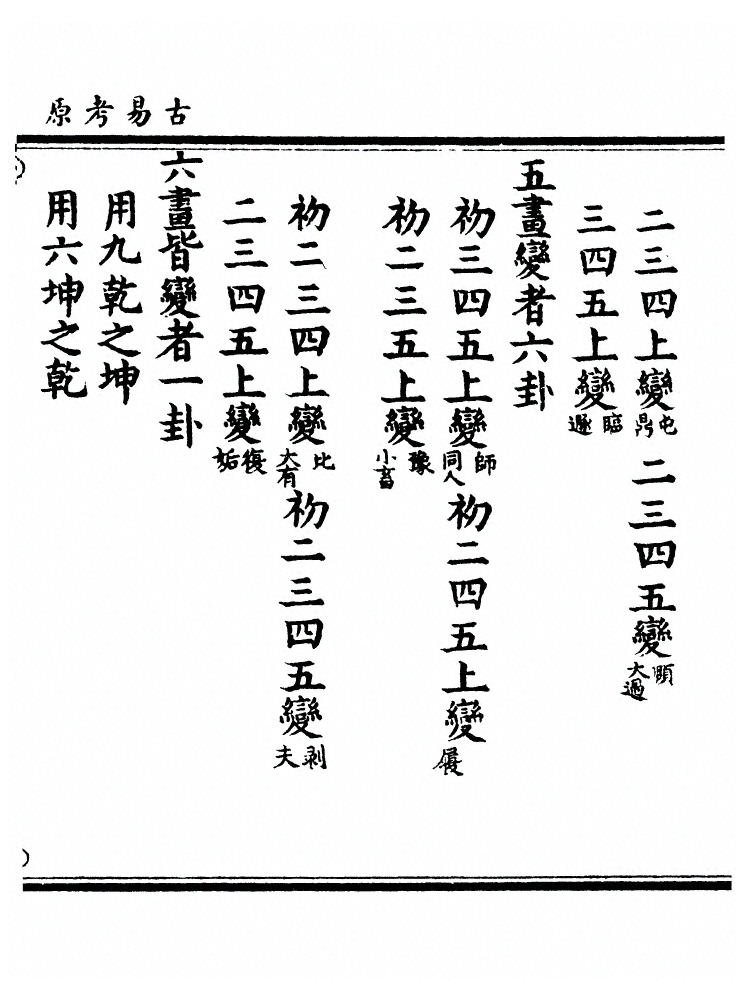 古易考原
二三四上變屯鼎二三四五變頤大過
三四五上變臨遯
五畫變者六卦
初三四五上變師同人初二四五上變履
初二三五上變豫小畜
初二三四上變比大有初二三四五變剥夫
二三四五上變復姤
六畫皆變者一卦
用九乾之坤
用六坤之乾